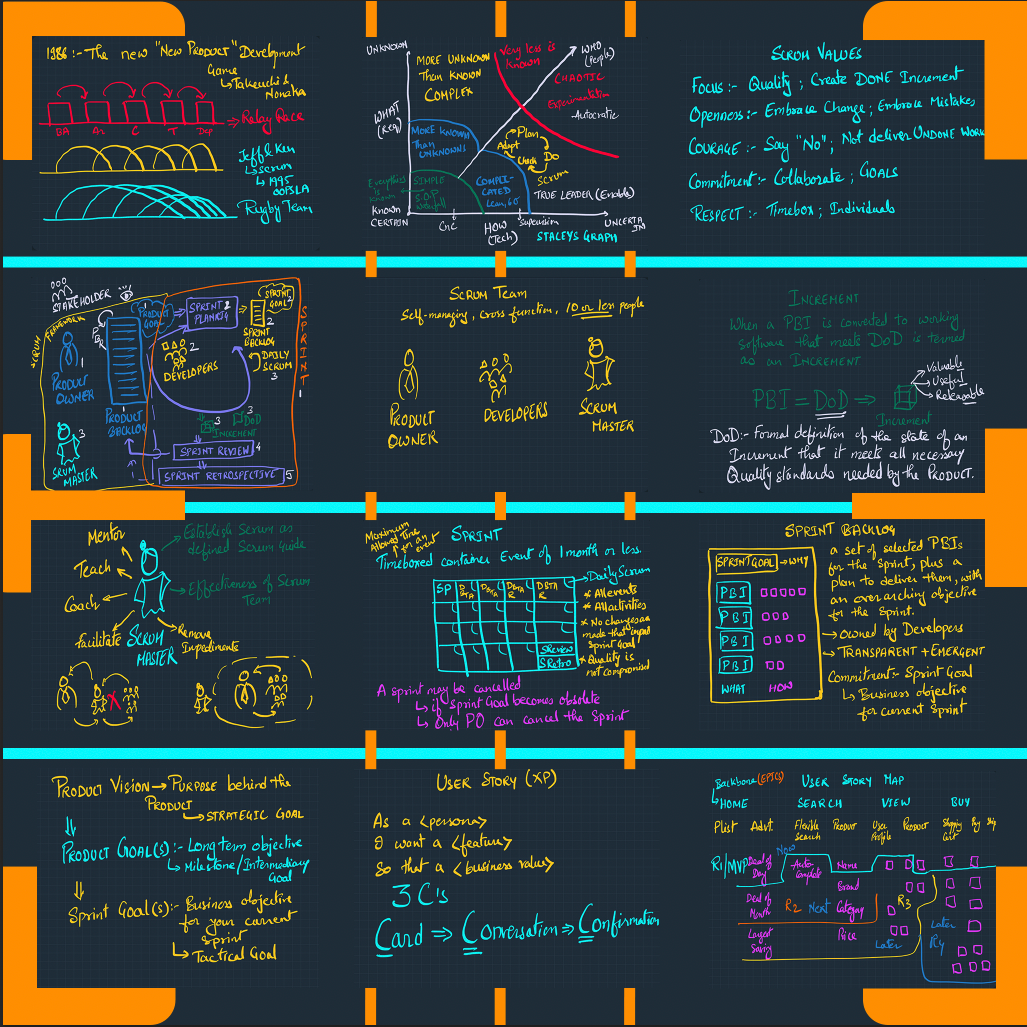 1986:- The new "New Product" Development
Game
↳ Takeuchi & Nonaka
BA An C T Dep
⇒ Relay Race
Jeff & Ken
↳ Scrum
↳ 1995
OOPSLA
Rugby Team
UNKNOWN
MORE UNKNOWN
Than KNOWN
COMPLEX
Very less is
known
WHO
(People)
CHAOTIC
Experimentation
-Autocratic
WHAT
(Req)
MORE KNOWN
Than
UNKNOWNS
Plan
Adapt
Do
Check
Scrum
Everything
is
Known
SIMPLE
S.O.P
Waterfall
COMPLI-
CATED
Lean, 6σ
TRUE LEADER (Enable)
KNOWN
CERTAIN
CnC
HOW
(Tech)
Supervision
UNCERTA
IN
STACEYS GRAPH
SCRUM VALUES
FOCUS:- Quality ; Create DONE Increment
OPENNESS:- Embrace Change ; Embrace Mistakes
COURAGE:- Say "No" ; Not deliver UNDONE WORK
Commitment:- Collaborate ; GOALS
RESPECT:- Timebox ; Individuals
STAKEHOLDER
SCRUM FRAMEWORK
PBR
PRODUCT
GOAL
1
SPRINT 1
PLANNING
SPRINT
GOAL
2
2
SPRINT
BACKLOG
SPRINT
1
1
PRODUCT
OWNER
2
DEVELOPERS
DAILY
SCRUM
3
1
PRODUCT
BACKLOG
3
3
DOD
INCREMENT
3
SCRUM
MASTER
SPRINT REVIEW 4
SPRINT RETROSPECTIVE 5
SCRUM TEAM
Self-managing, Cross function, 10 or less people
PRODUCT
OWNER
DEVELOPERS
SCRUM
MASTER
INCREMENT
When a PBI is converted to working
software that meets DoD is termed
as an INCREMENT
PBI = DoD ⇒
Valuable
Useful
Releasable
Increment
DoD:- Formal definition of the state of an
Increment that it meets all necessary
Quality standards needed by the PRODUCT.
Mentor
Teach
Coach
facilitate
Remove
Impediments
Establish Scrum as
defined Scrum Guide
Effectiveness of Scrum
Team
SCRUM
MASTER
Maximum
Allowed Time
for an
event
SPRINT
Timeboxed container Event of 1 month or less.
SP
Daily Scrum
* All events
* All activities
* No changes are
made that impact
Sprint Goal
* Quality is
not compromised
S Review
S Retro
A sprint may be cancelled
↳ if Sprint Goal becomes obsolete
↳ Only PO can cancel the Sprint
SPRINT BACKLOG
SPRINT GOAL → WHY
PBI
PBI
PBI
PBI
WHAT HOW
a set of selected PBIs
for the Sprint, plus a
plan to deliver them, with
an overarching objective
for the Sprint.
→ Owned by Developers
→ TRANSPARENT + EMERGENT
Commitment:- Sprint Goal
↳ Business objective
for current Sprint
PRODUCT VISION → PURPOSE behind the
PRODUCT
↳ STRATEGIC GOAL
⇓
PRODUCT GOAL(S):- Long term objective
↳ Milestone/Intermediary
Goal
⇓
Sprint Goal(s):- Business objective
for your current
Sprint
↳ Tactical Goal
USER STORY (XP)
As a <persona>
I want a <feature>
So that a <business value>
3 C's
Card ⇒ Conversation ⇒ Confirmation
Backbone (EPICS) USER STORY MAP
↳ HOME SEARCH VIEW BUY
Plist Advt. Flexible Search Product User Profile Product Shipping Cart Pay Ship
Now
R1/MVP Deal of Day Auto-Complete Name
Brand
Deal of Month R2 Next Category R3
Largest Saving Price Later
Later